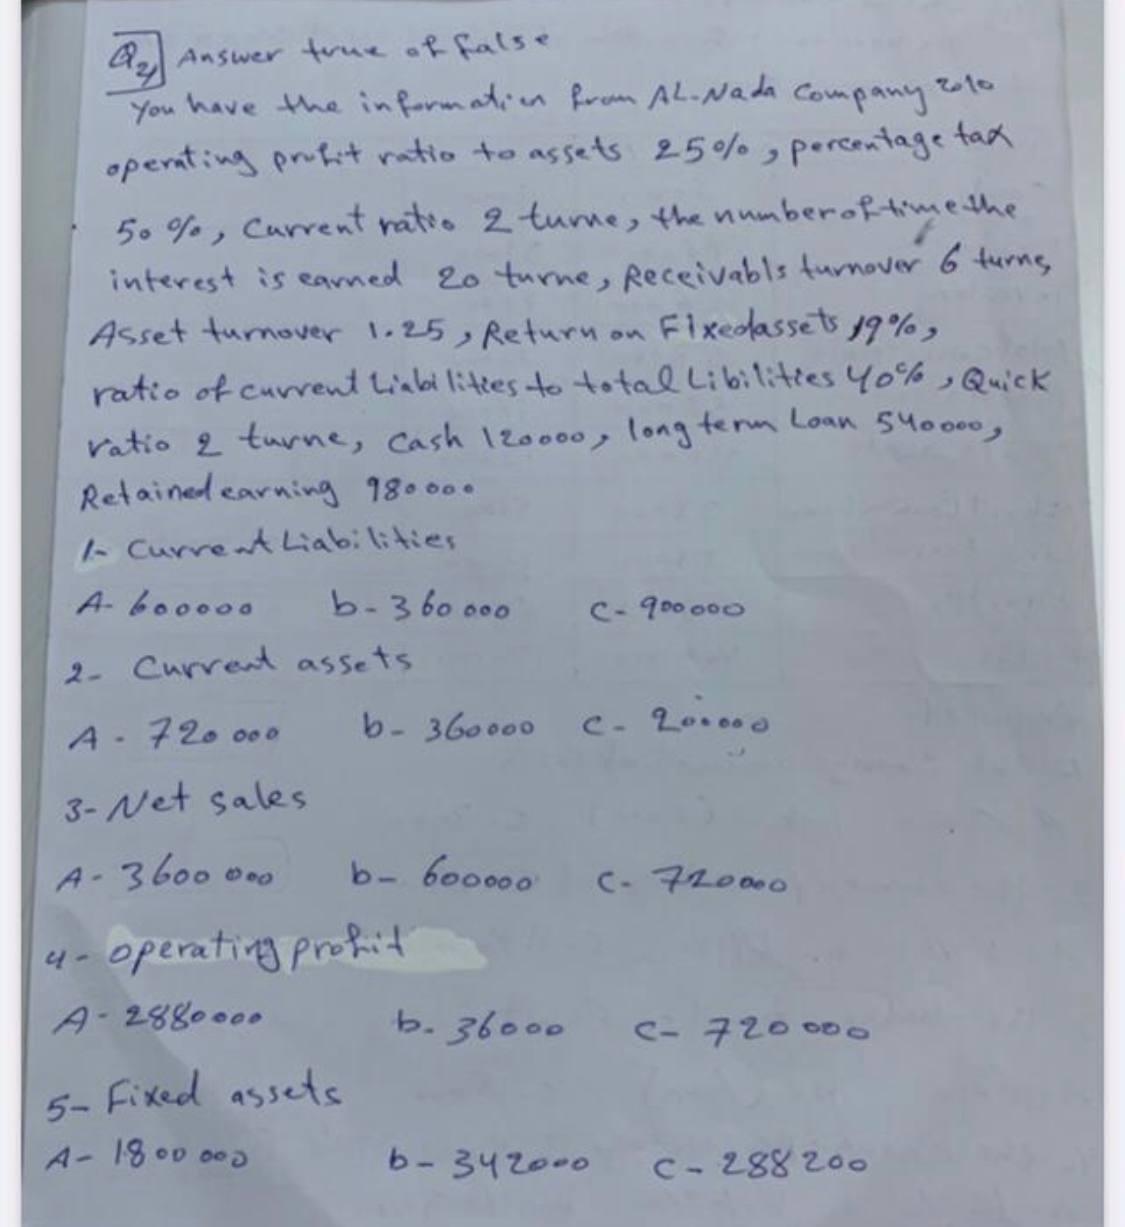 Q2 Answer true of false
You have the information from AL-Nada Company 2010
operating profit ratio to assets 25%, percentage tax
50%, Current ratio 2 turne, the number of time the
interest is earned 20 turne, Receivabls turnover 6 turne,
Asset turnover 1.25, Return on Fixed assets 19%,
ratio of current Liabilities to total Libilities 40%, Quick
ratio 2 turne, Cash 120000, long term Loan 540000,
Retained earning 980000
1- Current Liabilities
A- 600000 b- 360000 C- 900000
2- Current assets
A- 720000 b- 360000 C- 200000
3- Net sales
A- 3600000 b- 600000 C- 720000
4- operating profit
A- 2880000 b- 36000 C- 720000
5- Fixed assets
A- 1800000 b- 342000 C- 288200